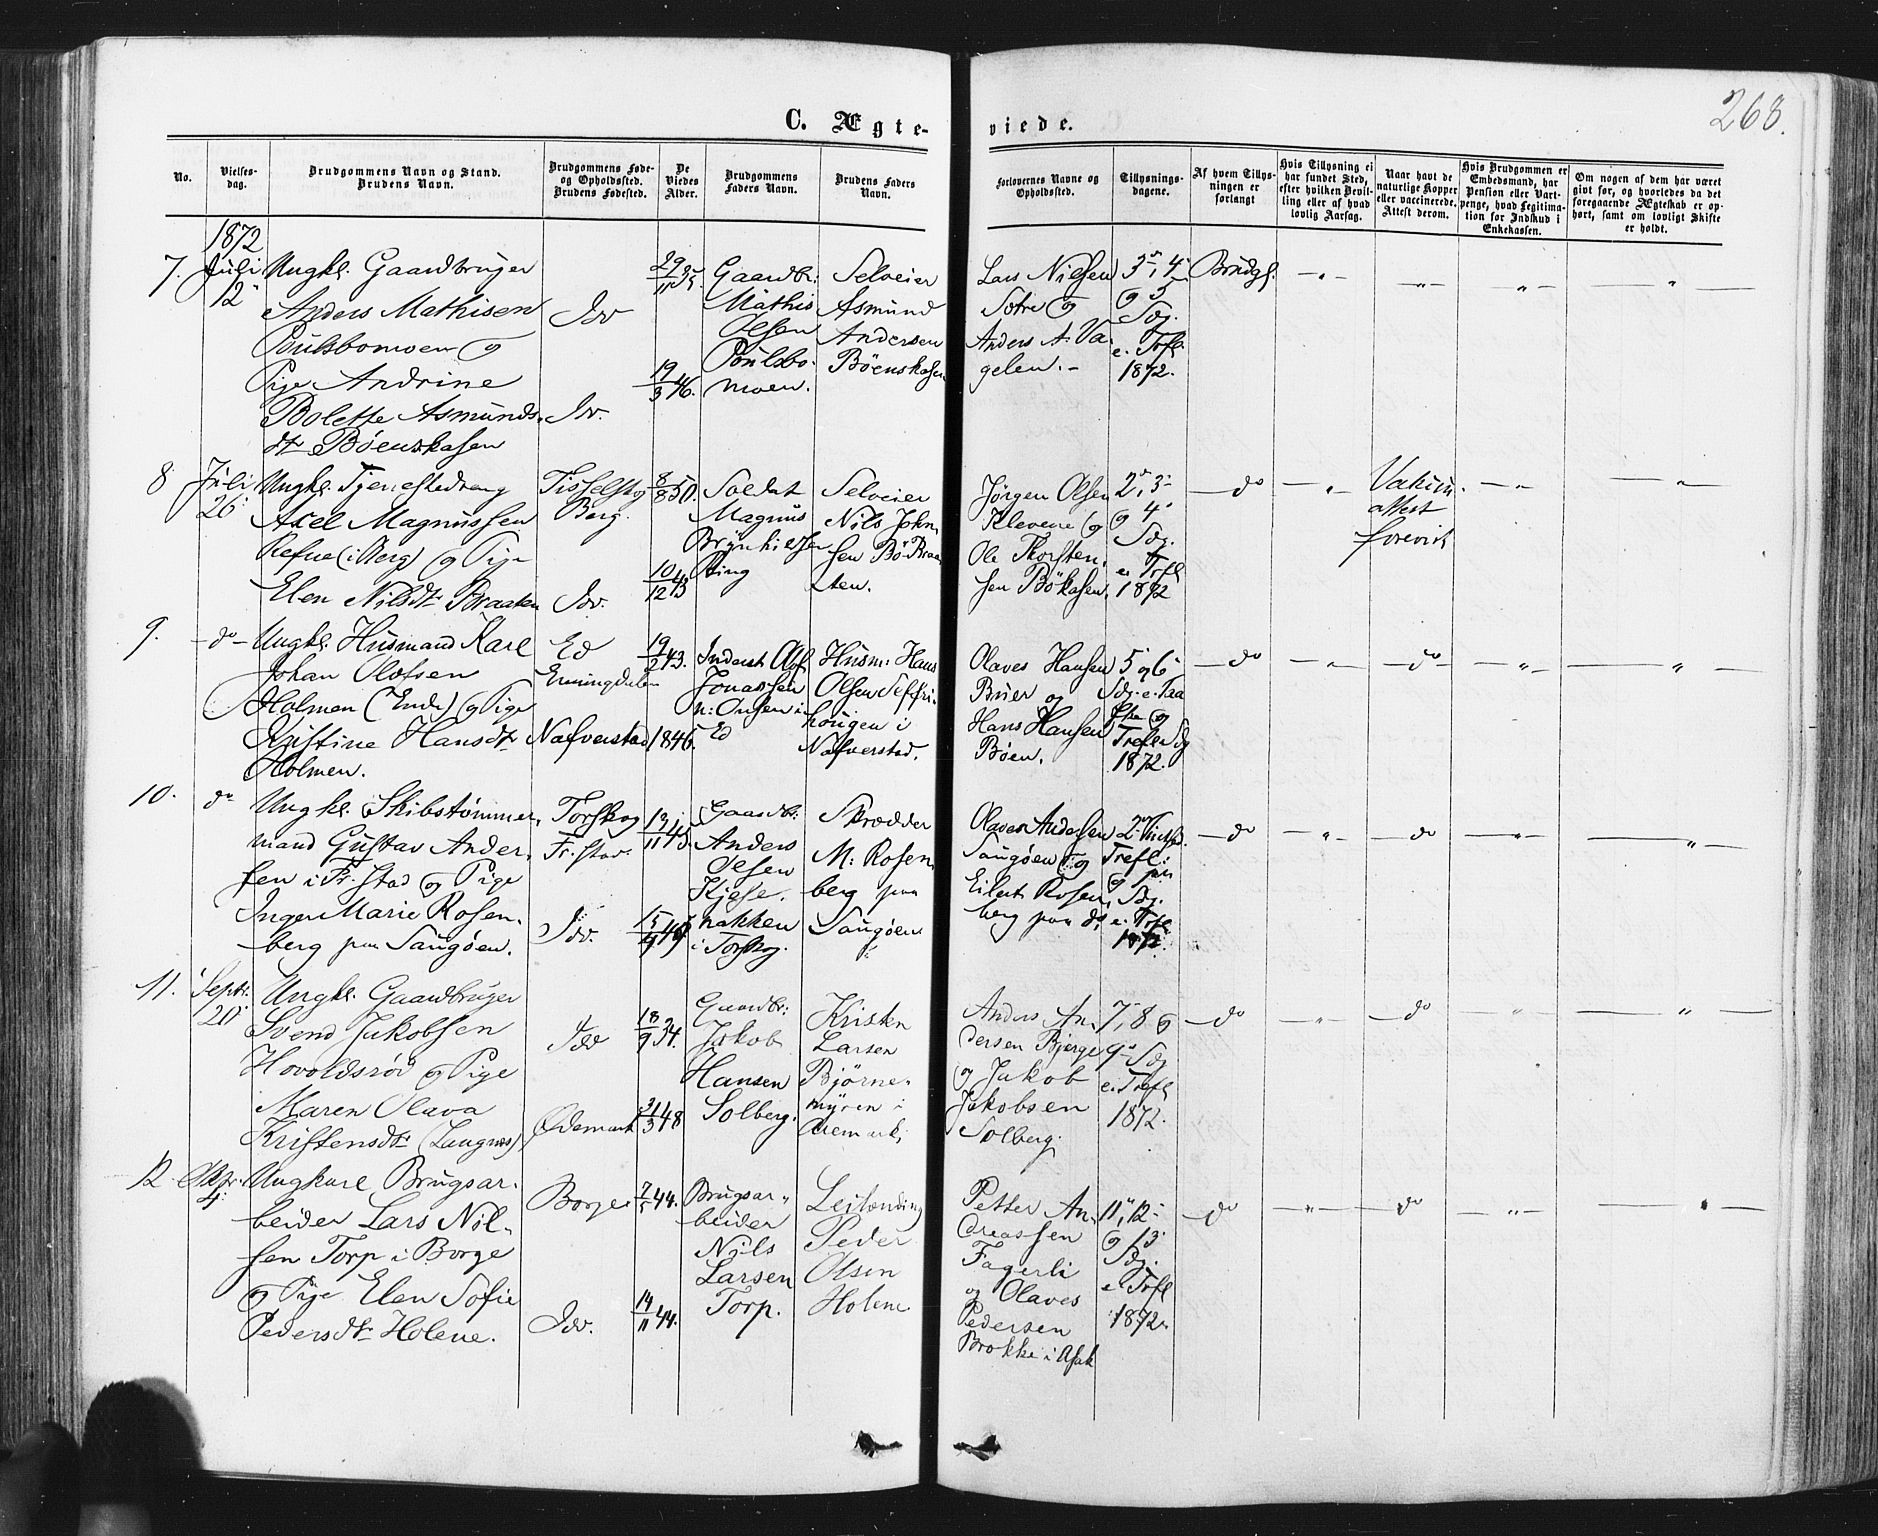 268.
C. Ægte-
viede.
No.
Vielses-
dag.
Brudgommens Navn og Stand.
Brudens Navn.
Brudgommens Føde-
og Opholdssted.
Brudens Fødested.
De
Viedes
Alder.
Brudgommens
Faders Navn.
Brudens Faders
Navn.
Forlovernes Navne og
Opholdssted.
Tillysnings-
dagene.
Af hvem Tillys-
ningen er
forlangt
Hvis Tillysning ei
har fundet Sted,
efter hvilken Bevil-
ling eller af hvad
lovlig Aarsag.
Naar havt de
naturlige Kopper
eller vaccinerede.
Attest derom.
Hvis Brudgommen er
Embedsmand, har
Pension eller Vart-
penge, hvad Legitima-
tion for Indskud i
Enkekassen.
Om nogen af dem har været
givt før, og hvorledes da det
foregaaende Ægteskab er op-
hørt, samt om lovligt Skifte
er holdt.
1872
7.
Juli
12
Ungkl. Gaardbruger
Anders Mathisen
Poulsbomoen og
Pige Andrine
Bolette Asmunds-
dtr Bøenskasen
Idd
Idd.
29/11 35.
19/3 46.
Gaardbr:
Mathis
Olsen
Poulsbo-
moen.
Selveier
Asmund
Andersen
Bøenskasen
Lars Nielsen
Sotre og
Anders A. Va-
gelen.
3, 4
og 5
Sdg.
e. Trfl.
1872.
Brudg.
8
Juli
26
Ungkl. Tjenestedreng
Axel Magnussen
Refne (i Berg) og Pige
Elen Nilsdtr Braaten
Tisselskog
Berg.
Idd.
8/8 50.
10/12 43
Soldat
Magnus
Brynhilsen
Ring
Selveier
Nils John-
sen Bø Braa-
ten.
Jørgen Olsen
Klevene og
Ole Thorsten-
sen Bökasen.
2, 3
og 4
Sdg.
e. Trfl
1872
do
Vakcin.
attest
forevist
9.
do
Ungkl. Husmand Karl
Johan Olofsen
Holmen (Ende) og Pige
Kristine Hansdtr
Holmen.
Ed
Enningdalen
Nafverstad
19/2 43.
1846.
Inderst Olof
Jonassen
i
Ed
Husm: Hans
Olsen Seffri-
hougen i
Nafverstad.
Olaves Hansen
Buer og
Hans Hansen
Bøen.
5 og 6
Sdg. e. Paa
ske og
Trefl. Sdg
1872.
do
do
10.
do
Ungkl. Skibstømmer-
mand Gustav Ander-
sen i Fr.stad og Pige
Inger Marie Rosen-
berg paa Saugøen.
Torskog
Fr.stad.
Idd.
13/11 45.
Gaardbr:
Anders
Olsen
Kjøse-
nakken
i Torskog.
Skrædder
M: Rosen-
berg paa
Saugøen
Olaves Andersen
Saugøen og
Eilert Rosen-
berg paa do
Trefl:
og
Sdg.
e. Trfl
1872.
do
do
11.
Septr.
20
Ungkl. Gaardbruger
Svend Jakobsen
Hovoldsrød og Pige
Maren Olava
Kristensdtr (Langnes)
Idd
Ødemark
18/9 34.
31/3 48
Gaardbr:
Jakob
Hansen
Solberg.
Kristen
Larsen
Bjørne-
myren i
Aremark.
Anders An-
dersen Bjerge
og Jakob
Jakobsen
Solberg.
7, 8 og
9 Sdg
e. Trefl
1872.
do
do
12.
Oktr.
4
Ungkarl Brugsar-
beider Lars Nil-
sen Torp i Borge
og Pige Elen Sofie
Pedersdtr Holene.
Borge
Idd.
44.
14/11 44.
Brugsar-
beider
Nils
Larsen
Torp.
Leilending
Peder
Olsen
Holene
Petter An-
dreassen
Fagerli
og Olaves
Pedersen
Brokke i Asak
11, 12
og 13
Sdg.
e. Trfl
1872.
do
do